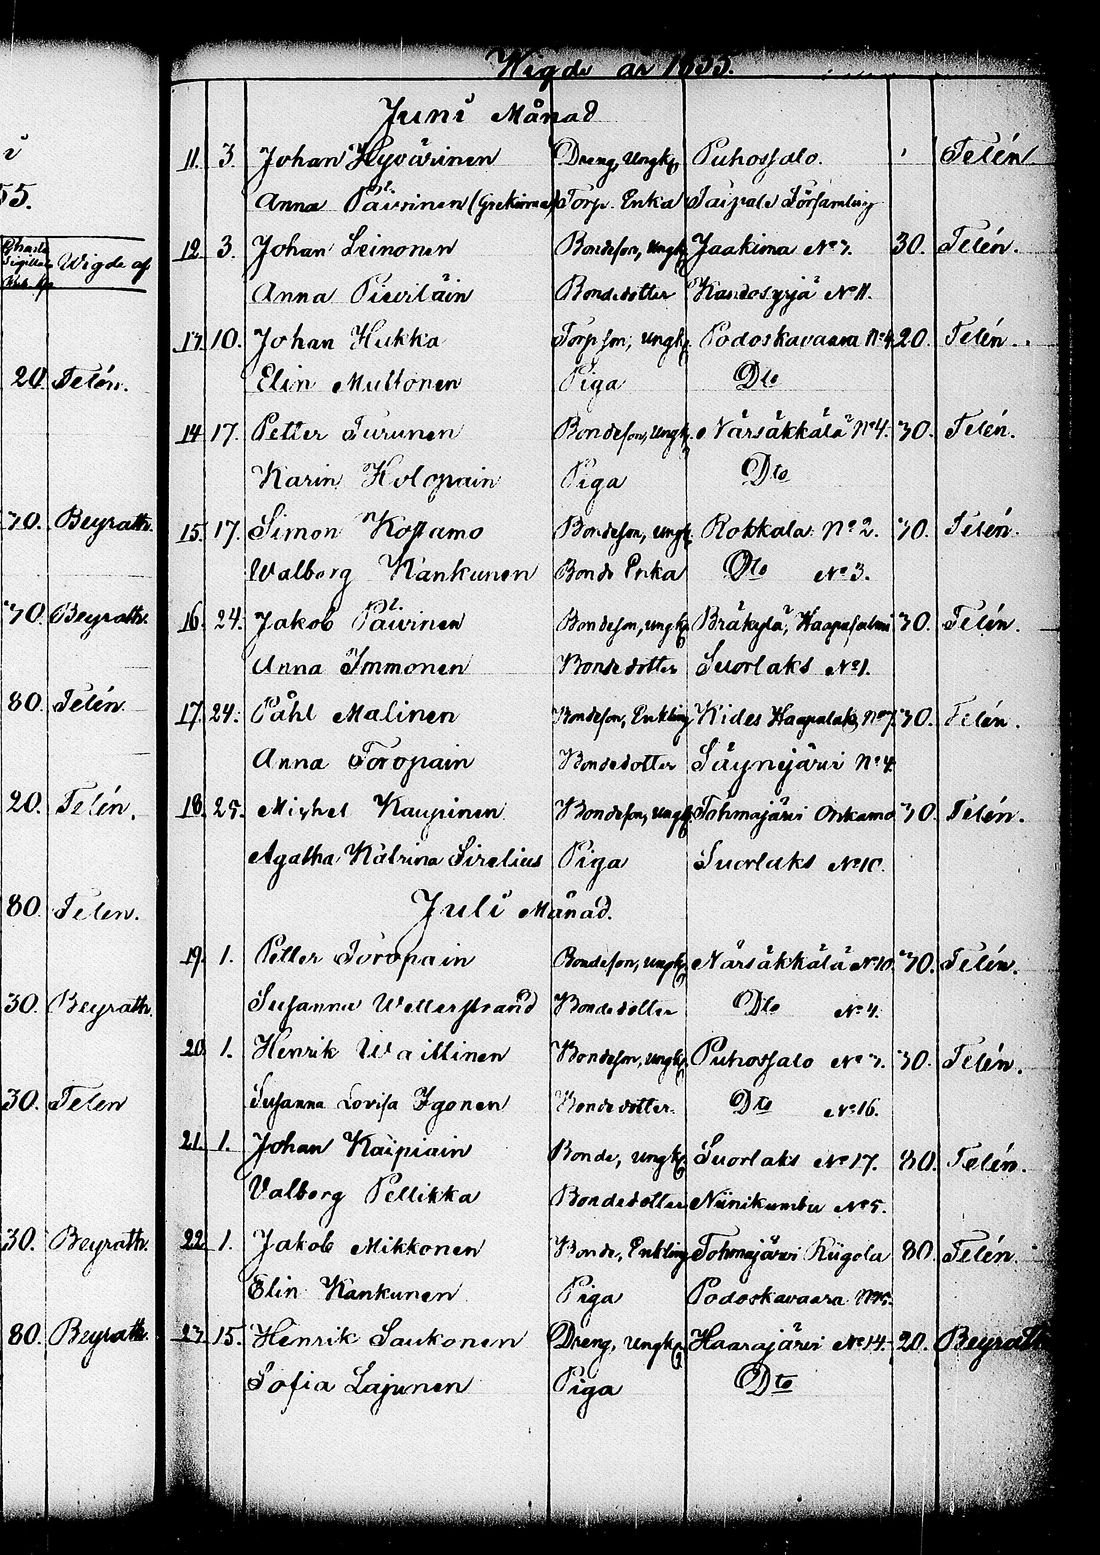 i
55.
Charta Sigillata Wigde af
20. Telén.
30. Beyrath.
30. Beyrath.
80. Telén.
20. Telén.
80. Telen.
30. Beyrath.
30. Telen
30. Beyrath.
80. Beyrath.
Wigde år 1855.
Juni Månad
11. 3. Johan Hyvärinen Dreng, Ungk. Puhossalo. Telén
Anna Päivinen (Grekinna) Torp. Enka Taipale Församling
12. 3. Johan Leinonen Bondeson, Ungk. Jaakima No 3. 30. Telén.
Anna Bondedotter No 11.
13. 10. Johan Hukka Torpson, Ungk. Podoskavaara No 4 20. Telén.
Elin Multonen Piga Dto
14. 17. Petter Turunen Bondeson, Ungk. Närsäkkälä No 4. 30. Telén.
Karin Holopain Piga Dto
15. 17. Simon Kossamo Bondeson, Ungk. Rokkala No 2. 30. Telén.
Walborg Kankunen Bonde Enka Dto No 3.
16. 24. Jakob Päivinen Bondeson, Ungk. Bräkylä, Haapasalmi 30. Telén.
Anna Immonen Bondedotter Suorlaks No 1.
17. 24. Påhl Malinen Bondeson, Enkling Kides Haapalaks No 7. 30. Telén.
Anna Toropain Bondedotter Säynejärvi No 4
18. 25. Mickel Kaupinen Bondeson, Ungk. Tohmajärvi Onkamo 30. Telén.
Agatha Katrina Sirelius Piga Suorlaks No 10.
Juli Månad.
19. 1. Petter Toropain Bondeson, Ungk. Närsäkkälä No 10. 30. Telén.
Susanna Wetterstrand Bondedotter Dto No 4.
20. 1. Henrik Waittinen Bondeson, Ungk. Puhossalo No 3. 30. Telén.
Susanna Lovisa Igonen Bondedotter. Dto No 16.
21. 1. Johan Kaipiain Bonde, Ungk. Suorlaks No 17. 80. Telén.
Valborg Pellikka Bondedotter Niinikumbu No 5.
22. 1. Jakob Mikkonen Bonde, Enkling Tohmajärvi Riigola 80. Telén.
Elin Kankunen Piga Podoskavaara
23. 15. Henrik Saukonen Dreng, Ungk. Haarajärvi No 14. 20. Beyrath
Sofia Lajunen Piga Dto